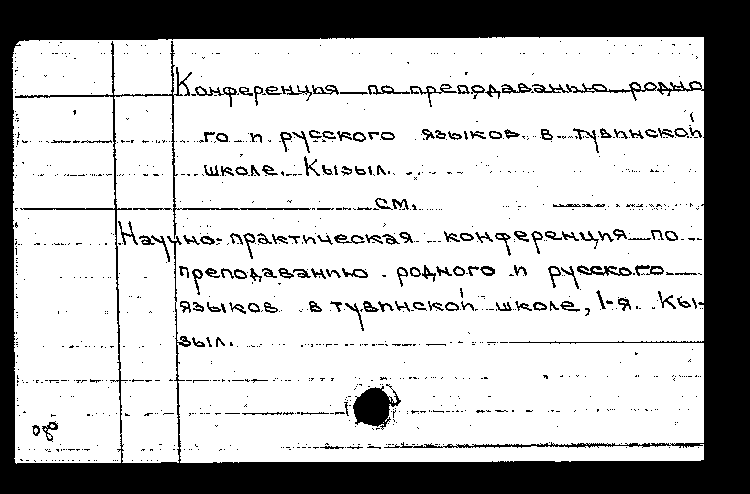 Конференция по преподаванию родно
го и русского языков в тувинской
школе. Кызыл.
см.
Научно-практическая конференция по
преподаванию родного и русского
языков в тувинской школе, 1-я. Кы-
зыл.